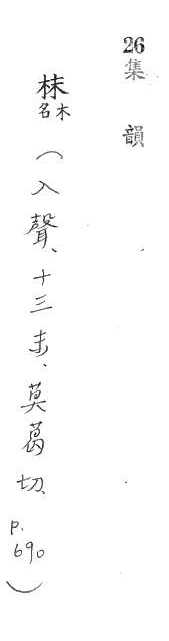 26集韻
枺木名(入聲、十三末、莫葛切、p.690)